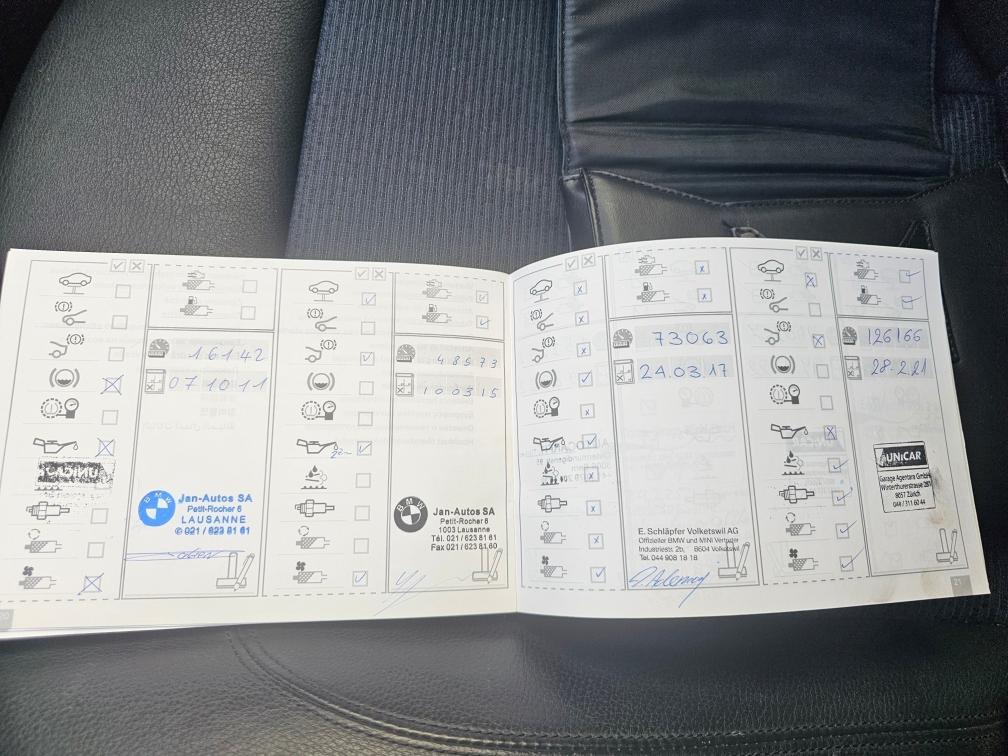 16142
07 10 11
BMW
Jan-Autos SA
Petit-Rocher 6
LAUSANNE
✆ 021 / 623 81 61
48573
10 03 15
BMW
Jan-Autos SA
Petit-Rocher 6
1003 Lausanne
Tél. 021 / 623 81 61
Fax 021 / 623 81 60
73063
24.03.17
E. Schläpfer Volketswil AG
Offizieller BMW und MINI Vertreter
Industriestr. 2b, 8604 Volketswil
Tel. 044 908 18 18
126166
28.2.21
UNiCAR
Garage Agentara GmbH
Winterthurerstrasse
8057 Zürich
044 / 311 60 44
21